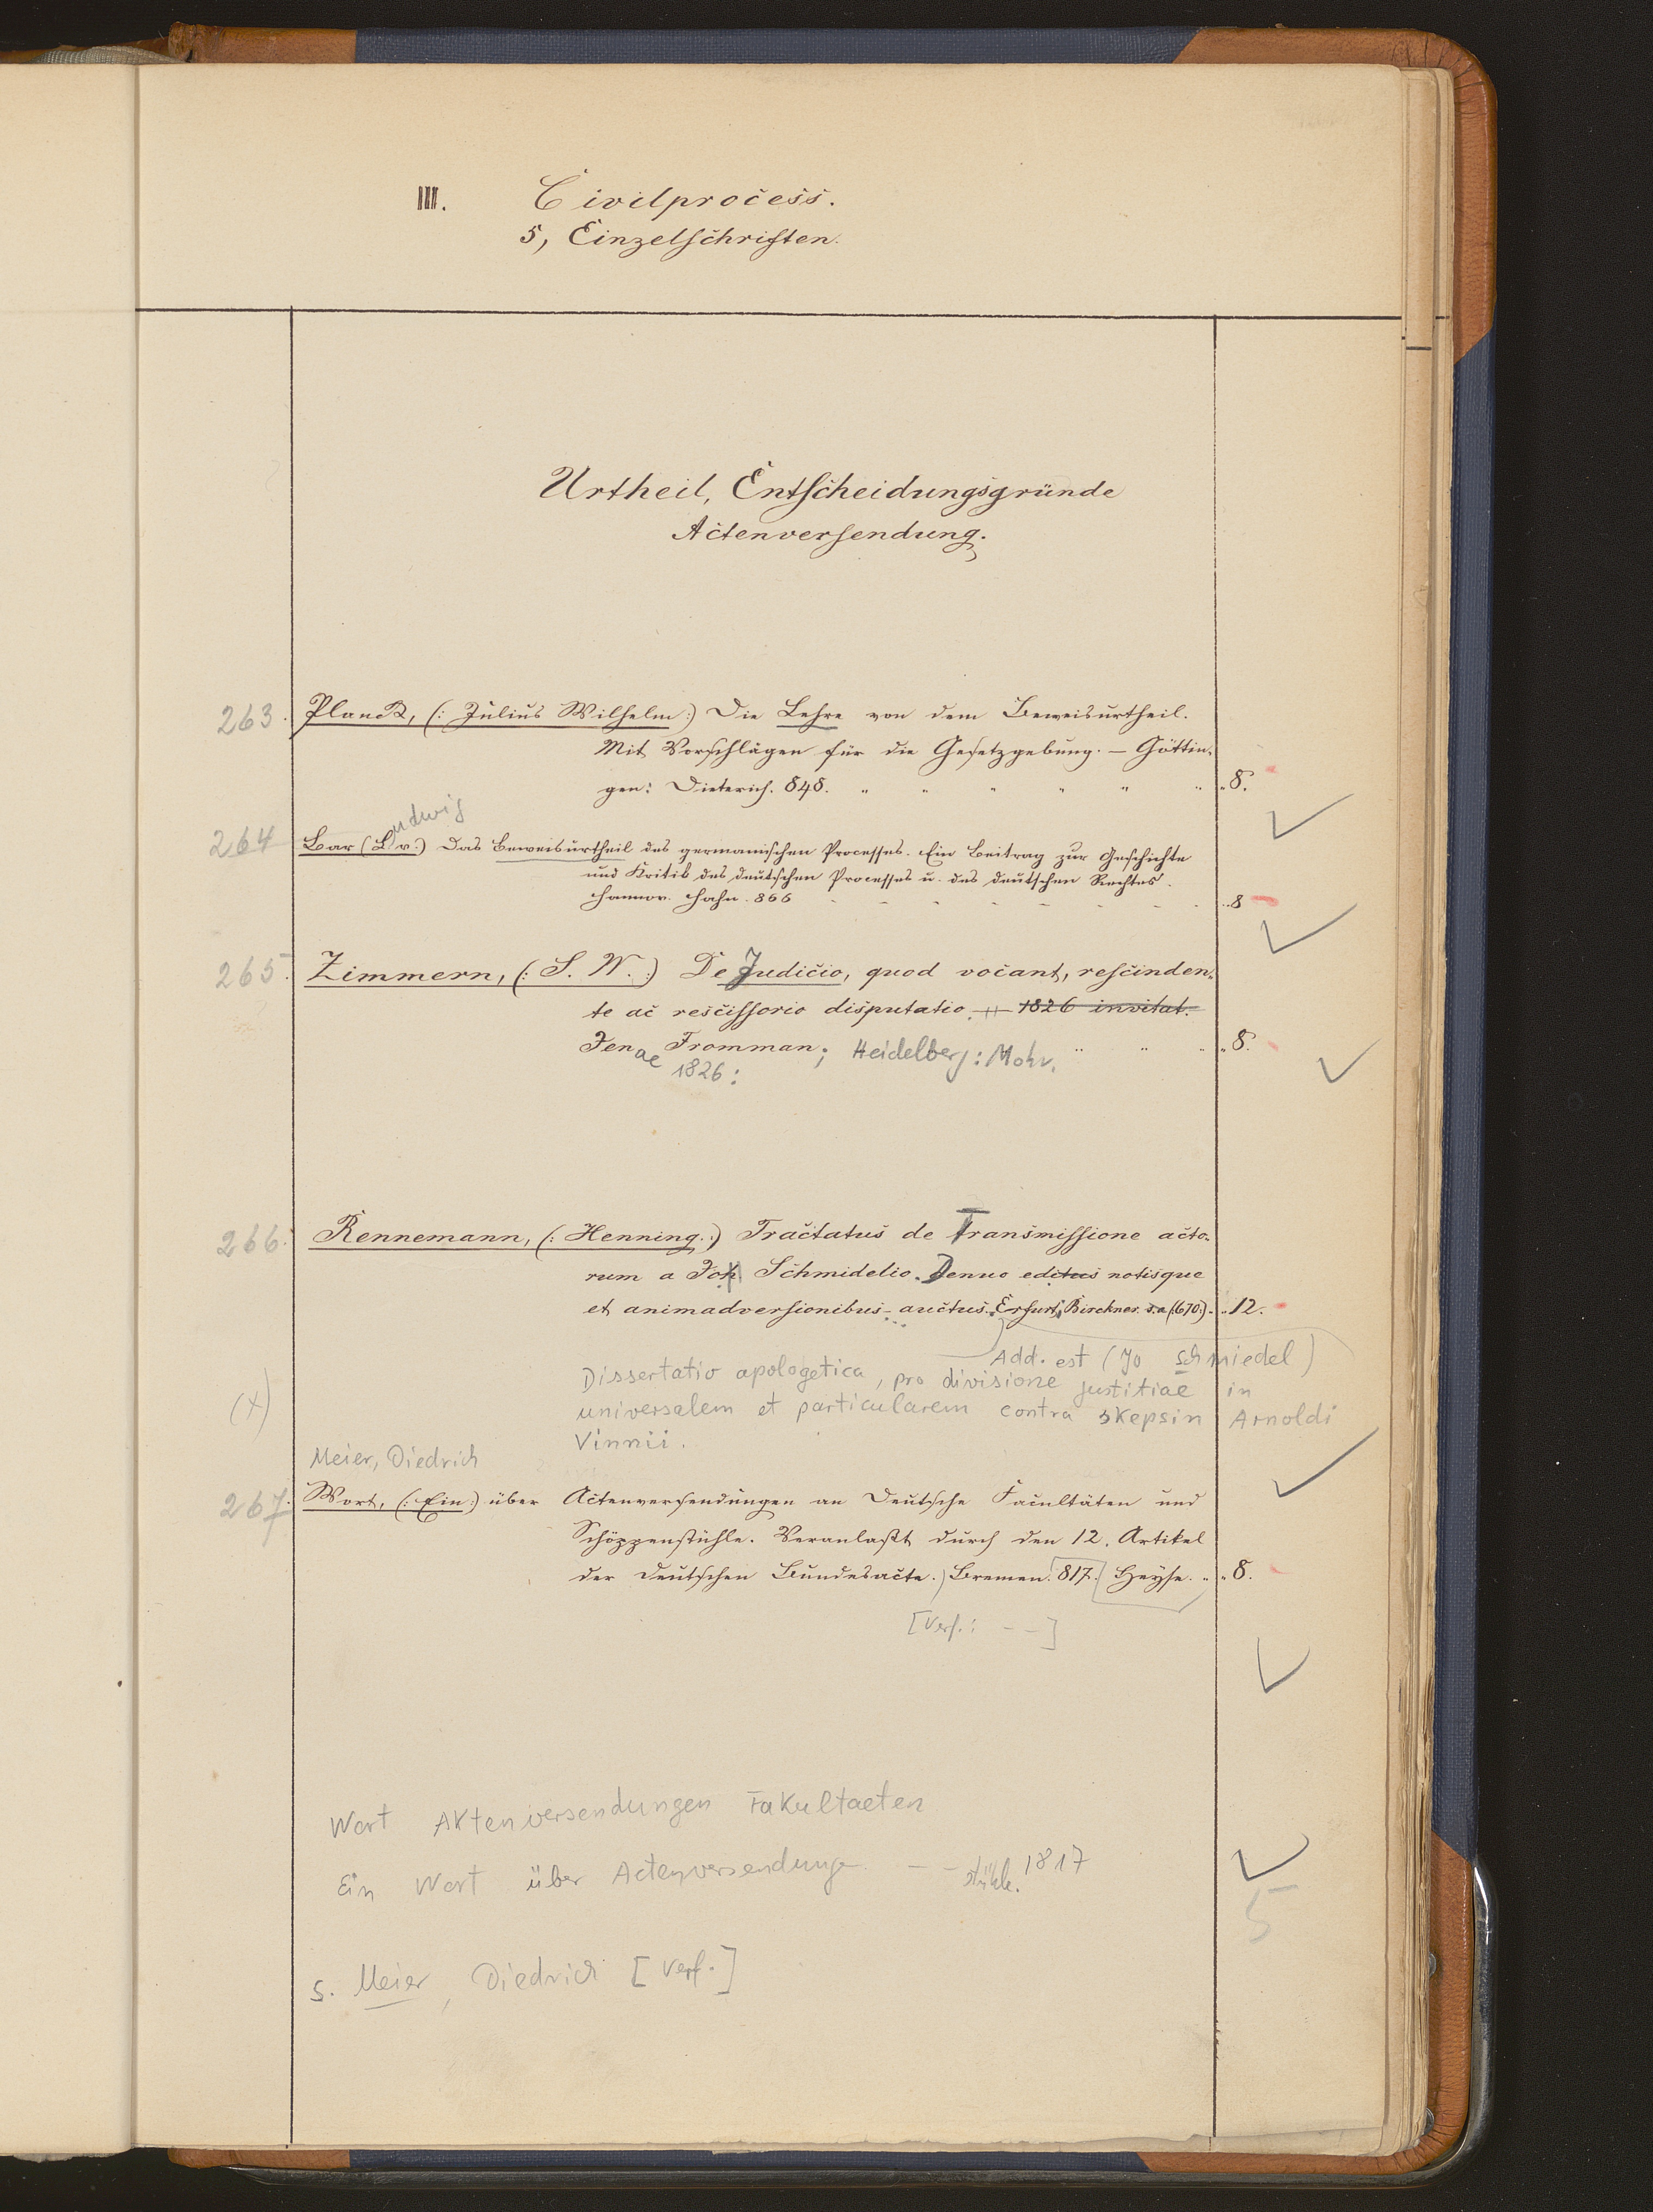 III. Civilprocess.
5, Einzelschriften.
Urtheil, Entscheidungsgründe
Actenversendung.
263. Planck, (: Julius Wilhelm :) Die Lehre von dem Beweisurtheil.
Mit Vorschlägen für die Gesetzgebung. — Göttin-
gen: Dieterich. 848. " " " " " " " 8.
udwig
264 Bar (L. v.) Das Beweisurtheil des germanischen Processes. Ein Beitrag zur Geschichte
und Kritik des deutschen Processes u. des deutschen Rechtes.
Hannov. Hahn. 866 - - - - - - - .. 8
265. Zimmern, (: S. W. :) De Judicio, quod vocant, rescinden-
te ac rescissorio disputatio. 1826 invitat.
Jenae Fromman; Heidelberg: Mohr. " " " " 8.
1826:
266. Rennemann, (: Henning. :) Tractatus de Transmissione acto-
rum a Joh Schmidelio. Denuo editus notisque
et animadversionibus auctus. Erfurt, Birckner. s. a (:670:). .. 12.
Add. est (Jo Schmiedel)
Dissertatio apologetica, pro divisione justitiae in
(x) universalem et particularem contra skepsin Arnoldi
Vinnii.
Meier, Diedrich
267. Wort, (: Ein :) über Actenversendungen an Deutsche Facultäten und
Schöppenstühle. Veranlaßt durch den 12. Artikel
der deutschen Bundesacte.) Bremen. 817. Heyse. " " 8.
[Verf.: - -]
Wort Aktenversendungen Fakultaeten
Ein Wort über Actenversendunge - - stühle. 1817
5
s. Meier, Diedrich [Verf.]